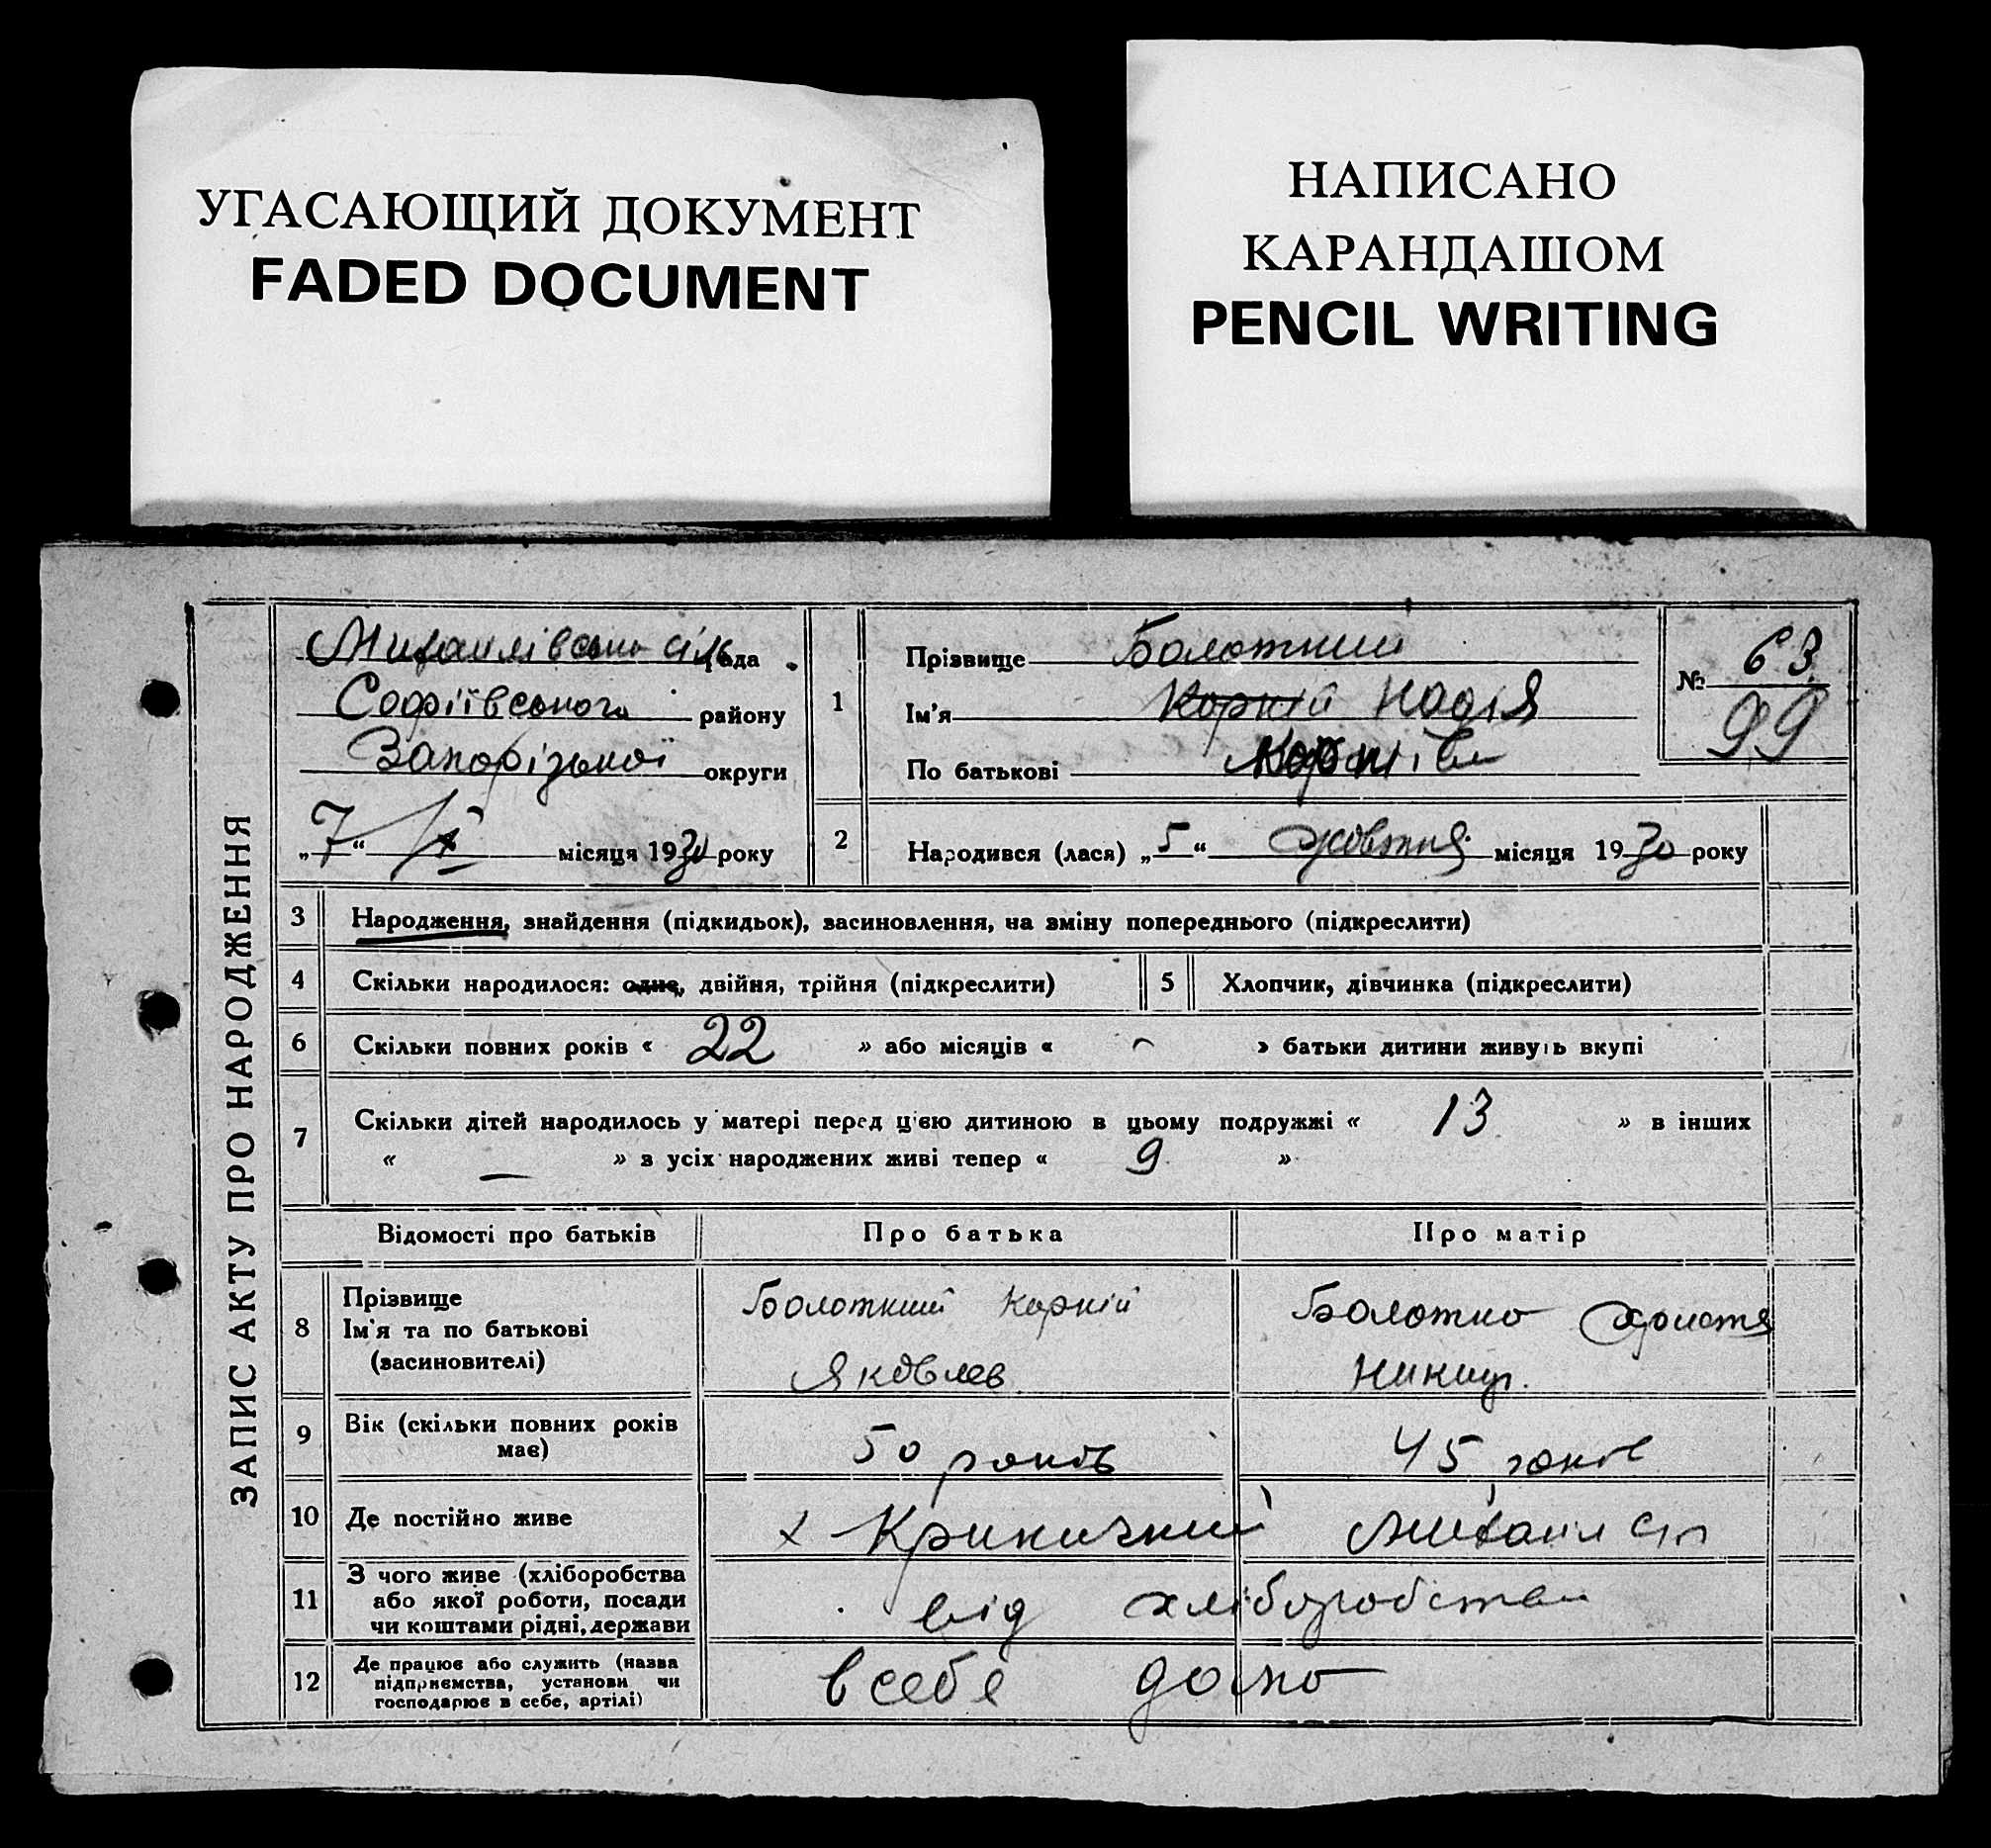 УГАСАЮЩИЙ ДОКУМЕНТ
FADED DOCUMENT
НАПИСАНО
КАРАНДАШОМ
PENCIL WRITING
ЗАПИС АКТУ ПРО НАРОДЖЕННЯ
Михайлівська сіль рада
Софіївського району
Запорізької округи
„7“ X місяця 1930 року
1 Прізвище Болотний
Ім'я Корній Надія
По батькові Корніїв
№ 63
99
2 Народився (лася) „5“ жовтня місяця 1930 року
3 Народження, знайдення (підкидьок), засиновлення, на зміну попереднього (підкреслити)
4 Скільки народилося: одне, двійня, трійня (підкреслити) 5 Хлопчик, дівчинка (підкреслити)
6 Скільки повних років « 22 » або місяців « - » батьки дитини живуть вкупі
7 Скільки дітей народилось у матері перед ц'єю дитиною в цьому подружжі « 13 » в інших
« — » з усіх народжених живі тепер « 9 »
Відомості про батьків Про батька Про матір
8 Прізвище
Ім'я та по батькові
(засиновителі)
Болотний Корній
Яковлев.
Болотно Христя
Никиф.
9 Вік (скільки повних років
має)
50 років 45 років
10 Де постійно живе х Криничний Михайл с/р
11 З чого живе (хліборобства
або якої роботи, посади
чи коштами рідні, держави
від хліборобства
12 Де працює або служить (назва
підприємства, установи чи
господарює в себе, артілі)
в себе дома